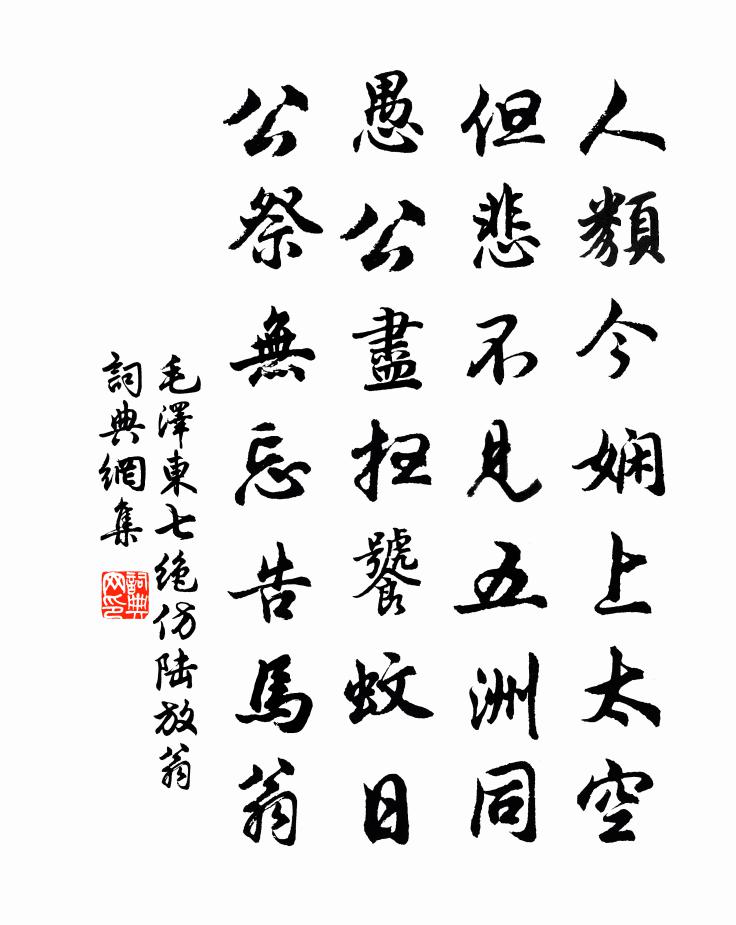 人類今嫻上太空
但悲不見五洲同
愚公盡掃饕蚊日
公祭無忘告馬翁
毛澤東七絶仿陸放翁
詞典網集
詞典网印